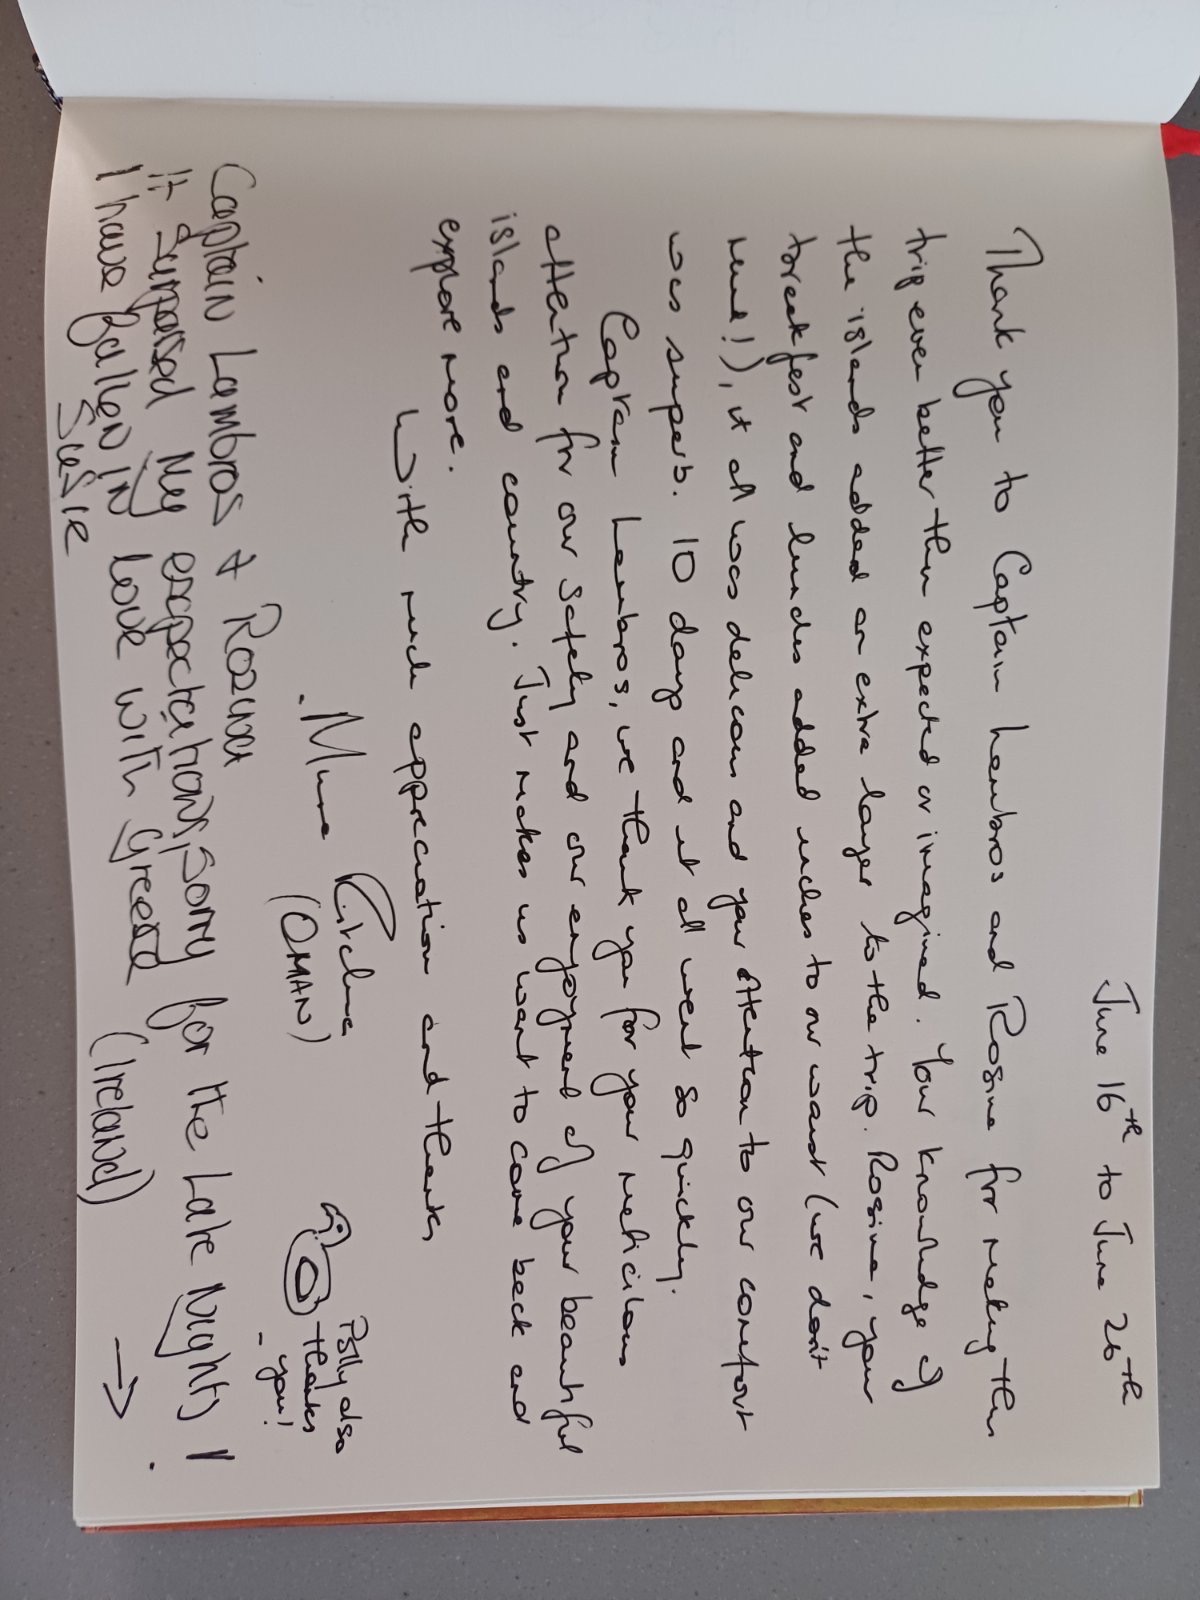 June 16th to June 26th
Thank you to Captain Lambros and Rosina for making this
trip even better than expected or imagined. Your knowledge of
the islands added an extra layer to the trip. Rosina, your
breakfast and lunches added inches to our waist (we don't
mind!), it all was delicious and your attention to our comfort
was superb. 10 days and it all went so quickly.
Captain Lambros, we thank you for your meticilous
attention for our safety and our enjoyment of your beautiful
islands and country. Just makes us want to come back and
explore more.
With much appreciation and thanks
Muna
(OMAN)
Polly also
thanks
you!
Captain Lambros & Rozina
it surpassed my expectations, sorry for the late nights I
I have fallen in love with Greece (Ireland)
Susie